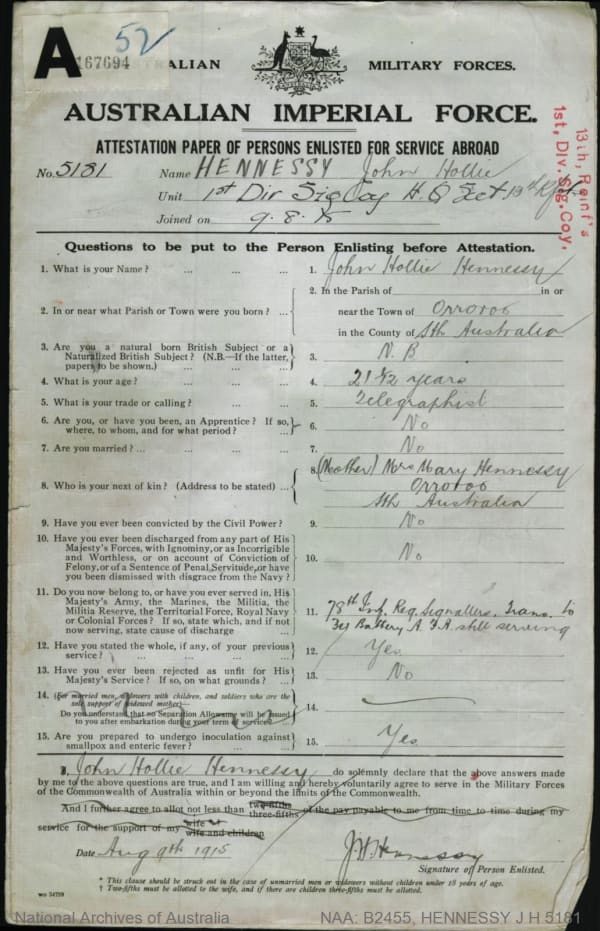 52
A
167694
AUSTRALIAN MILITARY FORCES.
AUSTRALIAN IMPERIAL FORCE.
13th, Reinf's
1st, Div. Sig. Coy,
ATTESTATION PAPER OF PERSONS ENLISTED FOR SERVICE ABROAD
No. 5181 Name HENNESSY John Hollie
Unit 1st Div Sig Coy H.Q Sect 13th Rfts
Joined on 9.8.15
Questions to be put to the Person Enlisting before Attestation.
1. What is your Name? ... ... ... 1. John Hollie Hennessy
2. In or near what Parish or Town were you born? ... 2. In the Parish of in or
near the Town of Orroroo
in the County of Sth Australia
3. Are you a natural born British Subject or a
Naturalized British Subject? (N.B.—If the latter,
papers to be shown.) ... 3. N.B
4. What is your age? ... ... ... 4. 21 4/12 years
5. What is your trade or calling? ... ... 5. Telegraphist
6. Are you, or have you been, an Apprentice? If so,
where, to whom, and for what period? ... 6. No
7. Are you married? ... ... ... 7. No
8. Who is your next of kin? (Address to be stated) ... 8. (Mother) Mrs Mary Hennessy
Orroroo
Sth Australia
9. Have you ever been convicted by the Civil Power? 9. No
10. Have you ever been discharged from any part of His
Majesty's Forces, with Ignominy, or as Incorrigible
and Worthless, or on account of Conviction of
Felony, or of a Sentence of Penal Servitude, or have
you been dismissed with disgrace from the Navy? 10. No
11. Do you now belong to, or have you ever served in, His
Majesty's Army, the Marines, the Militia, the
Militia Reserve, the Territorial Force, Royal Navy
or Colonial Forces? If so, state which, and if not
now serving, state cause of discharge ... 11. 78th Inf. Reg. Signallers. Trans. to
34 Battery A.F.A. still serving
12. Have you stated the whole, if any, of your previous
service? ... ... ... 12. Yes
13. Have you ever been rejected as unfit for His
Majesty's Service? If so, on what grounds? ... 13. No
14. (For married men, widowers with children, and soldiers who are the
sole support of widowed mother)
Do you understand that no Separation Allowance will be issued
to you after embarkation during your term of service? 14.
15. Are you prepared to undergo inoculation against
smallpox and enteric fever? ... ... 15. Yes
I, John Hollie Hennessy do solemnly declare that the above answers made
by me to the above questions are true, and I am willing and hereby voluntarily agree to serve in the Military Forces
of the Commonwealth of Australia within or beyond the limits of the Commonwealth.
And I further agree to allot not less than two-fifths three-fifths of the pay payable to me from time to time during my
service for the support of my wife wife and children
Date Aug 9th 1915 J H Hennessy
Signature of Person Enlisted.
* This clause should be struck out in the case of unmarried men or widowers without children under 18 years of age.
† Two-fifths must be allotted to the wife, and if there are children three-fifths must be allotted.
National Archives of Australia NAA: B2455, HENNESSY J H 5181